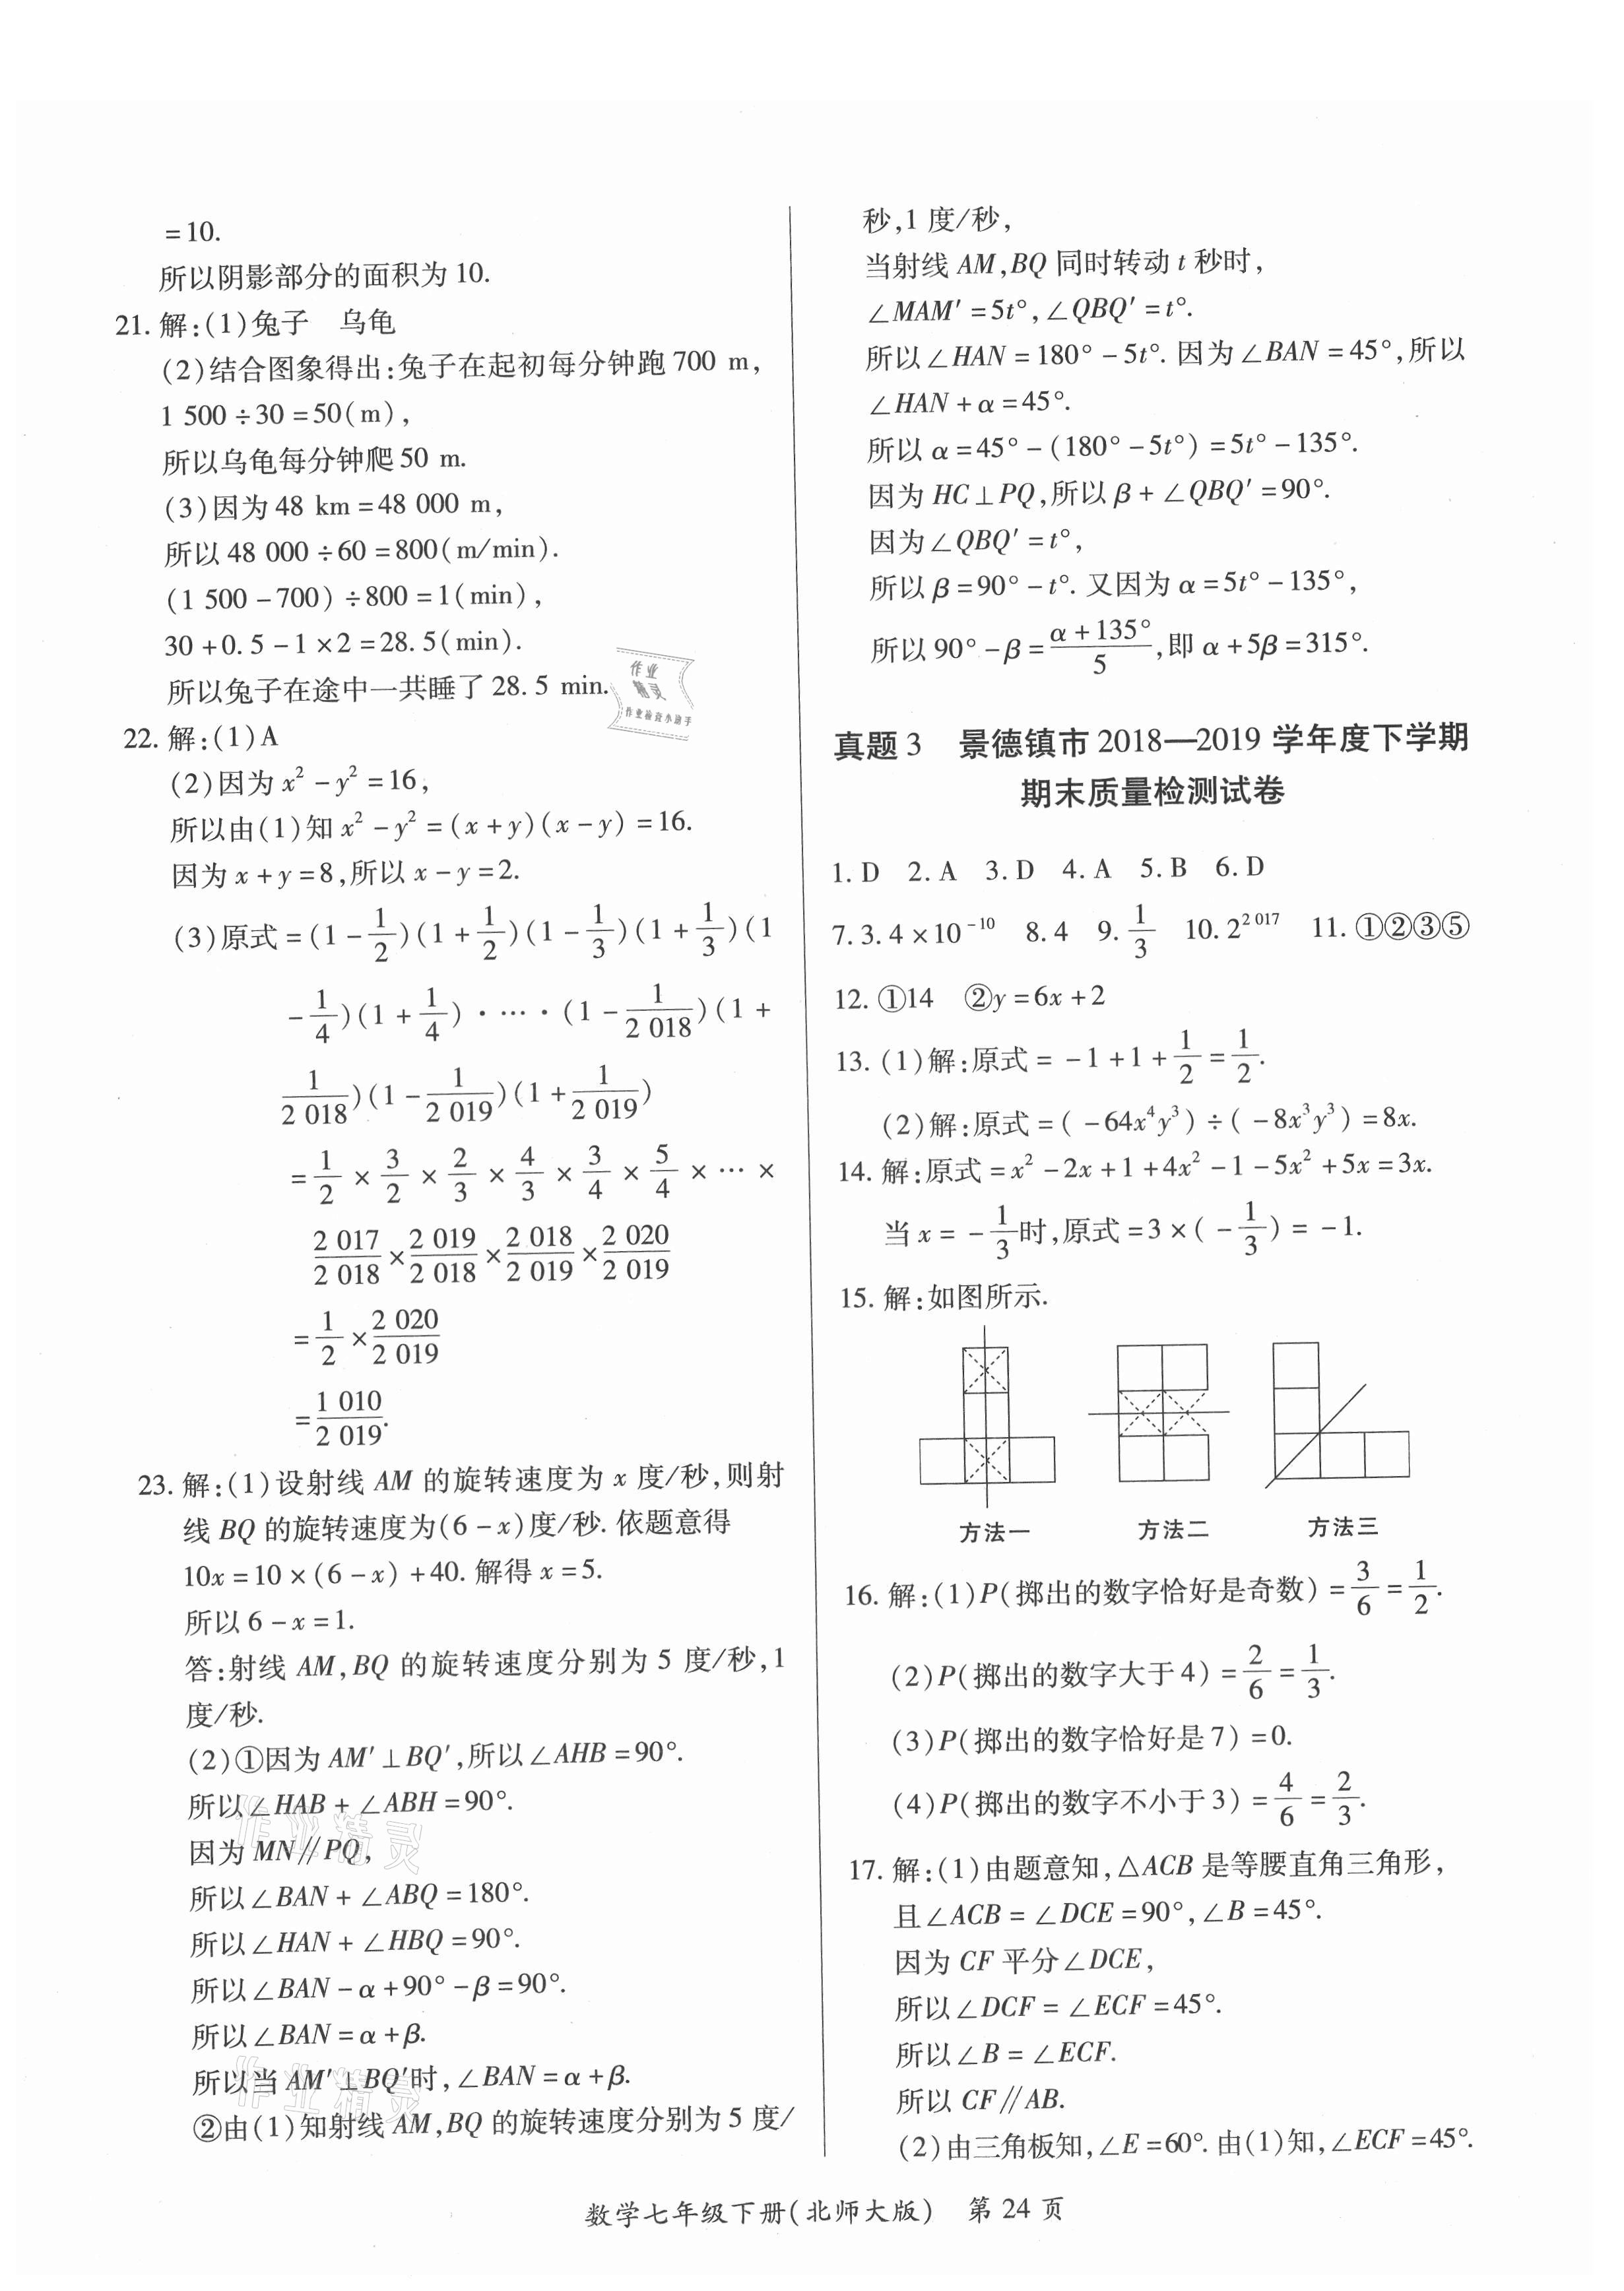 =10.
所以阴影部分的面积为10.
21. 解:(1)兔子　乌龟
(2)结合图象得出:兔子在起初每分钟跑700 m,
1 500÷30=50(m),
所以乌龟每分钟爬50 m.
(3)因为48 km=48 000 m,
所以48 000÷60=800(m/min).
(1 500-700)÷800=1(min),
30+0.5-1×2=28.5(min).
所以兔子在途中一共睡了28.5 min.
22. 解:(1)A
(2)因为x²-y²=16,
所以由(1)知x²-y²=(x+y)(x-y)=16.
因为x+y=8,所以x-y=2.
(3)原式=(1-1/2)(1+1/2)(1-1/3)(1+1/3)(1
-1/4)(1+1/4)·…·(1-1/2 018)(1+
1/2 018)(1-1/2 019)(1+1/2 019)
=1/2×3/2×2/3×4/3×3/4×5/4×…×
2 017/2 018×2 019/2 018×2 018/2 019×2 020/2 019
=1/2×2 020/2 019
=1 010/2 019.
23. 解:(1)设射线AM的旋转速度为x度/秒,则射
线BQ的旋转速度为(6-x)度/秒.依题意得
10x=10×(6-x)+40.解得x=5.
所以6-x=1.
答:射线AM,BQ的旋转速度分别为5度/秒,1
度/秒.
(2)①因为AM′⊥BQ′,所以∠AHB=90°.
所以∠HAB+∠ABH=90°.
因为MN∥PQ,
所以∠BAN+∠ABQ=180°.
所以∠HAN+∠HBQ=90°.
所以∠BAN-α+90°-β=90°.
所以∠BAN=α+β.
所以当AM′⊥BQ′时,∠BAN=α+β.
②由(1)知射线AM,BQ的旋转速度分别为5度/
秒,1度/秒,
当射线AM,BQ同时转动t秒时,
∠MAM′=5t°,∠QBQ′=t°.
所以∠HAN=180°-5t°.因为∠BAN=45°,所以
∠HAN+α=45°.
所以α=45°-(180°-5t°)=5t°-135°.
因为HC⊥PQ,所以β+∠QBQ′=90°.
因为∠QBQ′=t°,
所以β=90°-t°.又因为α=5t°-135°,
所以90°-β=(α+135°)/5,即α+5β=315°.
真题3　景德镇市2018—2019学年度下学期
期末质量检测试卷
1. D　2. A　3. D　4. A　5. B　6. D
7. 3.4×10⁻¹⁰　8. 4　9. 1/3　10. 2²⁰¹⁷　11. ①②③⑤
12. ①14　②y=6x+2
13. (1)解:原式=-1+1+1/2=1/2.
(2)解:原式=(-64x⁴y³)÷(-8x³y³)=8x.
14. 解:原式=x²-2x+1+4x²-1-5x²+5x=3x.
当x=-1/3时,原式=3×(-1/3)=-1.
15. 解:如图所示.
方法一　方法二　方法三
16. 解:(1)P(掷出的数字恰好是奇数)=3/6=1/2.
(2)P(掷出的数字大于4)=2/6=1/3.
(3)P(掷出的数字恰好是7)=0.
(4)P(掷出的数字不小于3)=4/6=2/3.
17. 解:(1)由题意知,△ACB是等腰直角三角形,
且∠ACB=∠DCE=90°,∠B=45°.
因为CF平分∠DCE,
所以∠DCF=∠ECF=45°.
所以∠B=∠ECF.
所以CF∥AB.
(2)由三角板知,∠E=60°.由(1)知,∠ECF=45°.
数学七年级下册(北师大版)　第24页
作业
精灵
作业检查小助手
作业精灵
作业精灵